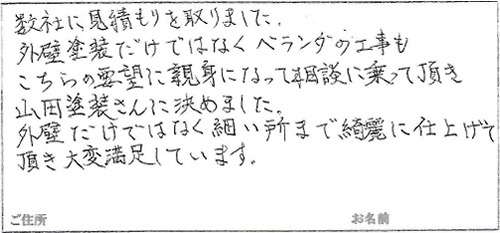 数社に見積もりを取りました。
外壁塗装だけではなくベランダの工事も
こちらの要望に親身になって相談に乗って頂き
山田塗装さんに決めました。
外壁だけではなく細い所まで綺麗に仕上げて
頂き大変満足しています。
ご住所 お名前